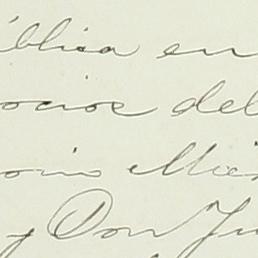 ública en
ocios del
onio Mié
y Don Ju